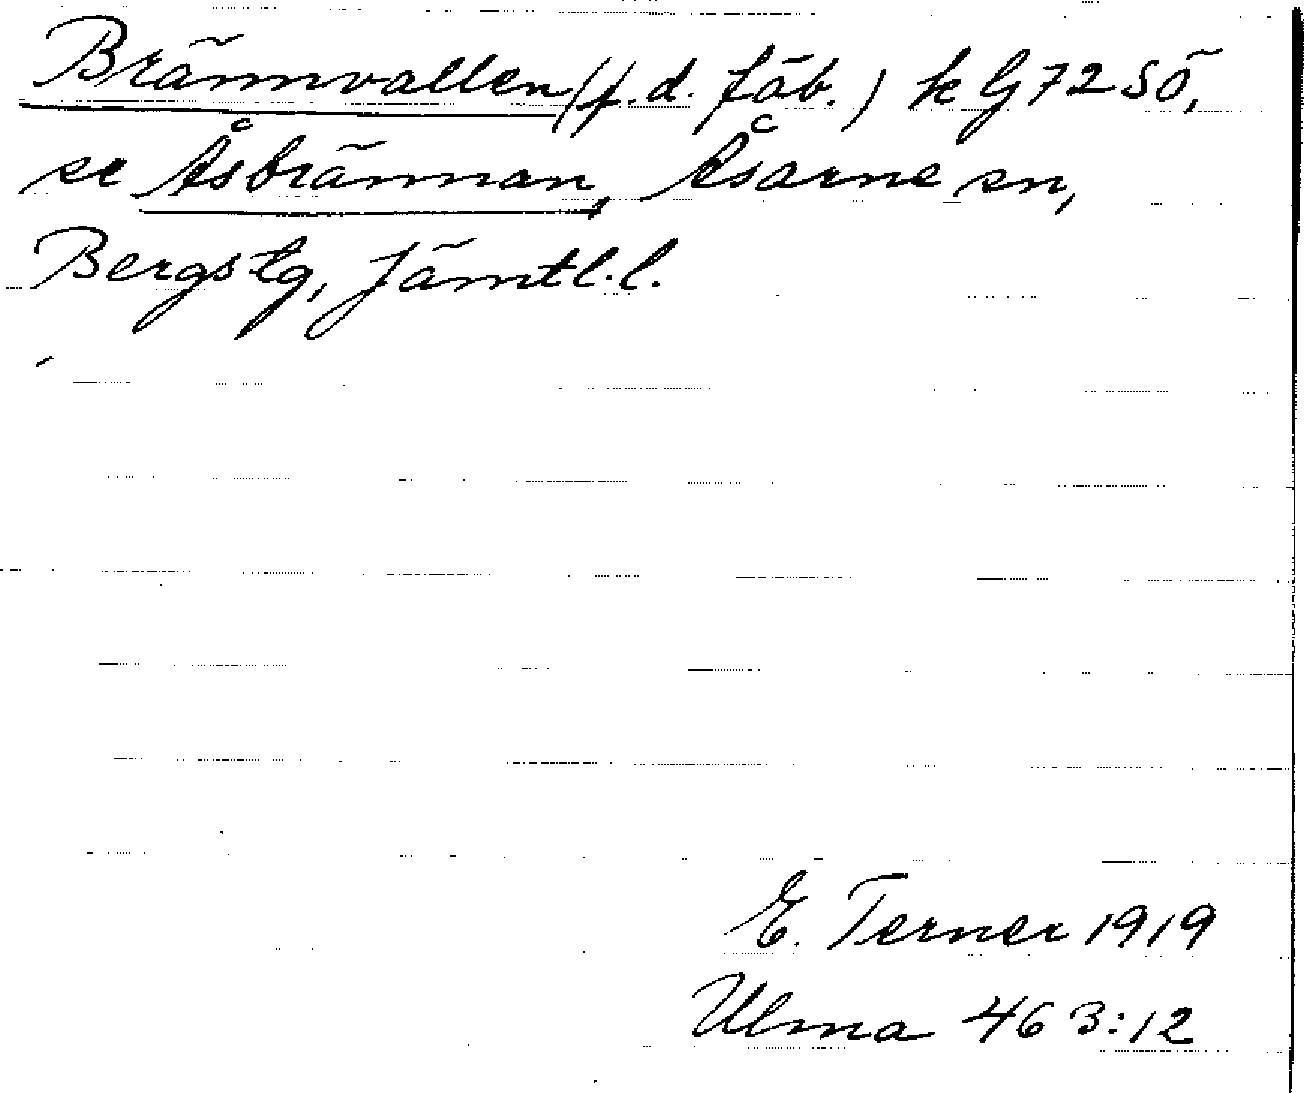 Brännvallen (f.d. fäb.) k G 72 SÖ,
se Åsbrännan, Åsarne sn,
Bergs tg, Jämtl. l.
E. Terner 1919
Ulma 463:12